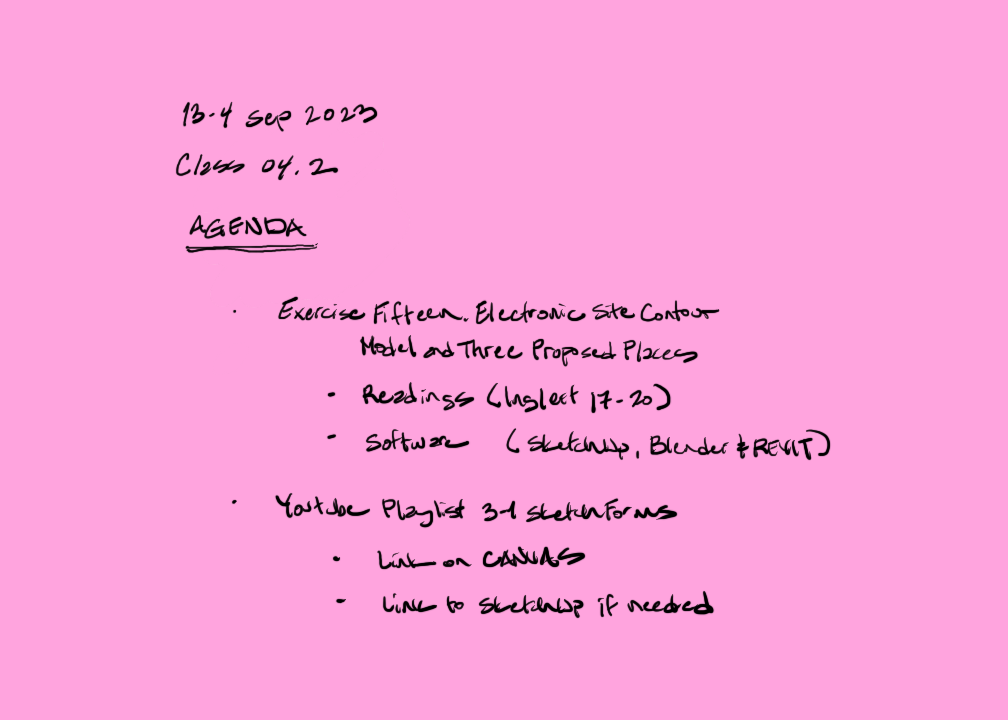 13-4 Sep 2023
Class 04.2
AGENDA
· Exercise Fifteen. Electronic Site Contour
Model and Three Proposed Places
- Readings (Inglert 17-20)
- Software (SketchUp, Blender & REVIT)
· Youtube Playlist 3-1 Sketch Forms
- Link on CANVAS
- Link to SketchUp if needed